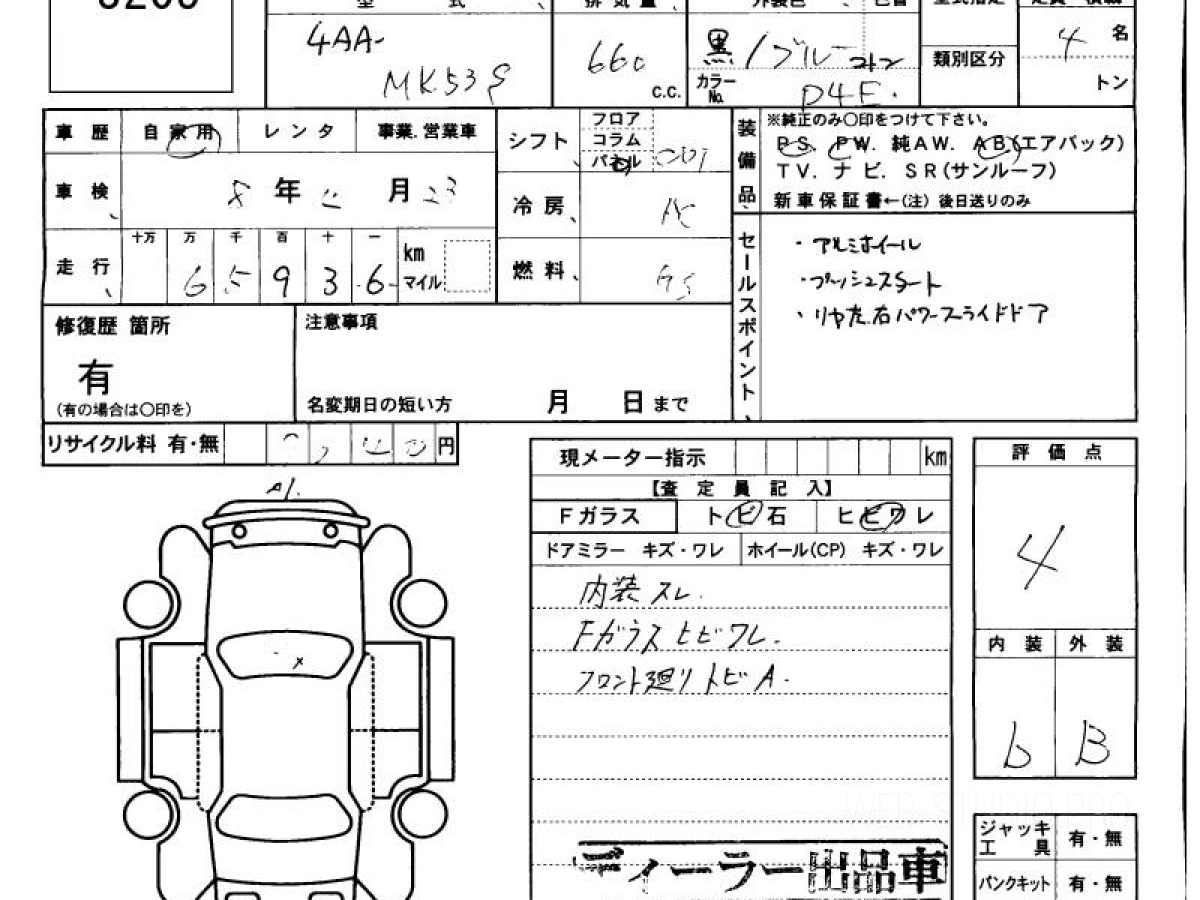 型 式
排気量
外装色
4AA-
MK53S
660
c.c.
黒/ブルー
コトン
カラーNo.
D4E
類別区分
4 名
トン
車歴 自家用 レンタ 事業.営業車
車検 8年 月23
走行 十万 万 千 百 十 一
6 5 9 3 6
km
マイル
シフト フロア コラム パネル
冷房、 AC
燃料、
装備品
※純正のみ○印をつけて下さい。
PS. PW. 純AW. AB(エアバック)
TV. ナビ. SR(サンルーフ)
新車保証書←(注) 後日送りのみ
セールスポイント
・アルミホイール
・プッシュスタート
・リヤ左右パワースライドドア
修復歴 箇所
有
(有の場合は○印を)
注意事項
名変期日の短い方 月 日まで
リサイクル料 有・無 円
A1.
現メーター指示 km
【査定員記入】
Fガラス トビ石 ヒビワレ
ドアミラー キズ・ワレ ホイール(CP) キズ・ワレ
内装スレ.
Fガラスヒビワレ.
フロント廻りトビA.
ディーラー出品車
評価点
4
内装 外装
b B
ジャッキ
工具 有・無
パンクキット 有・無
WEB-STUDIO.PRO